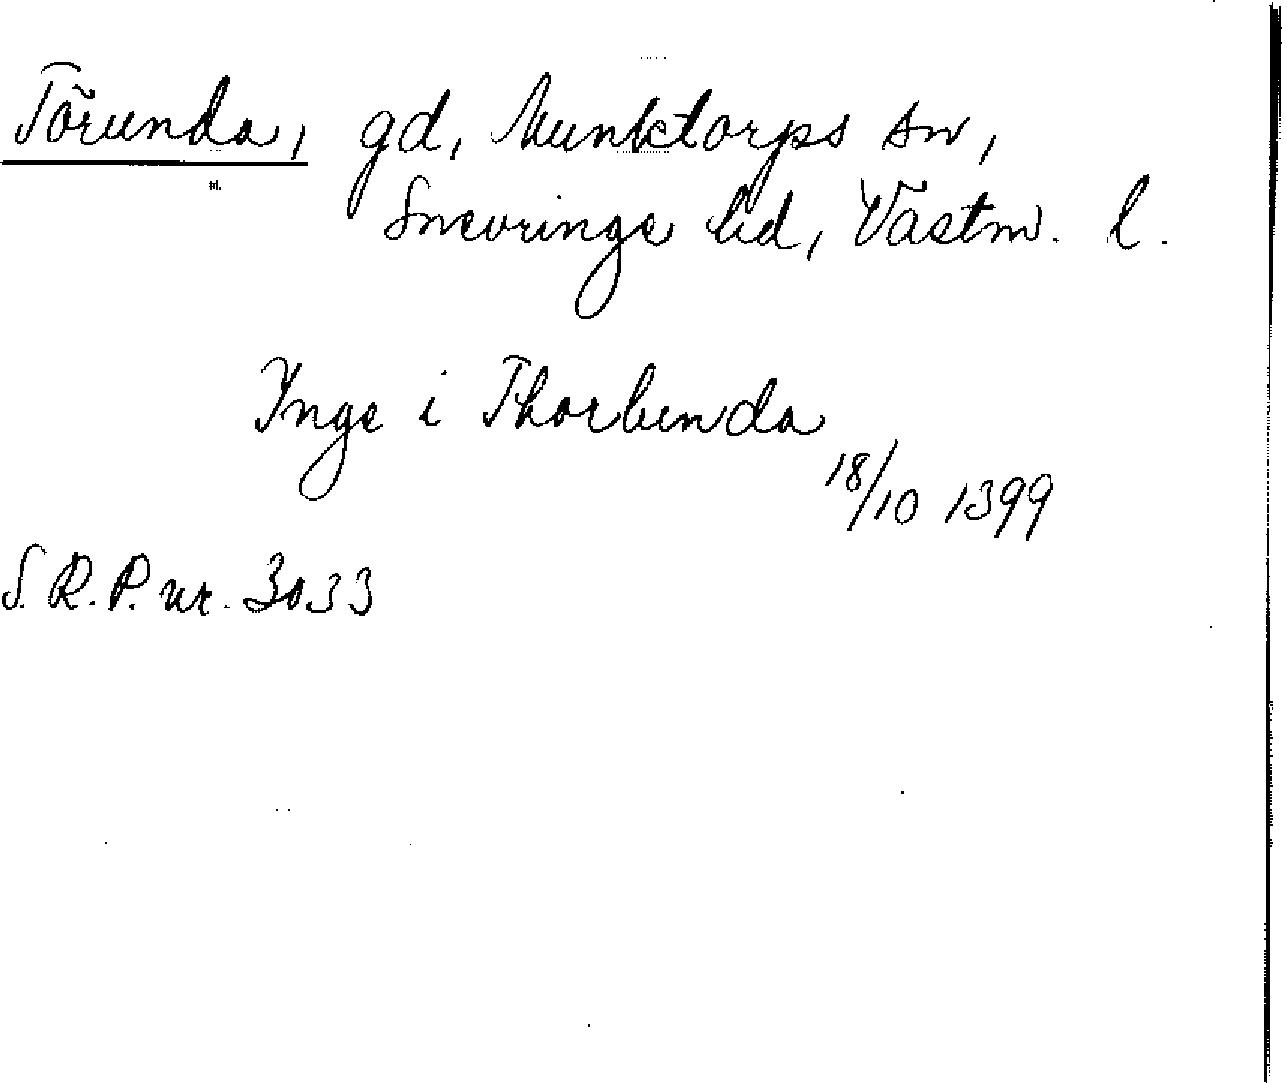 Törunda, gd, Munktorps sn,
Snevringe hd, Västm. l.
Ynge i Thorbunda
18/10 1399
S.R.P. nr. 3033